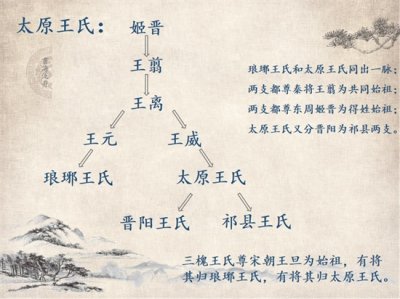 太原王氏：
姬晋
王翦
王离
王元
王威
琅琊王氏
太原王氏
晋阳王氏
祁县王氏
琅琊王氏和太原王氏同出一脉；
两支都尊秦将王翦为共同始祖；
两支都尊东周姬晋为得姓始祖；
太原王氏又分晋阳为祁县两支。
三槐王氏尊宋朝王旦为始祖，有将
其归琅琊王氏，有将其归太原王氏。